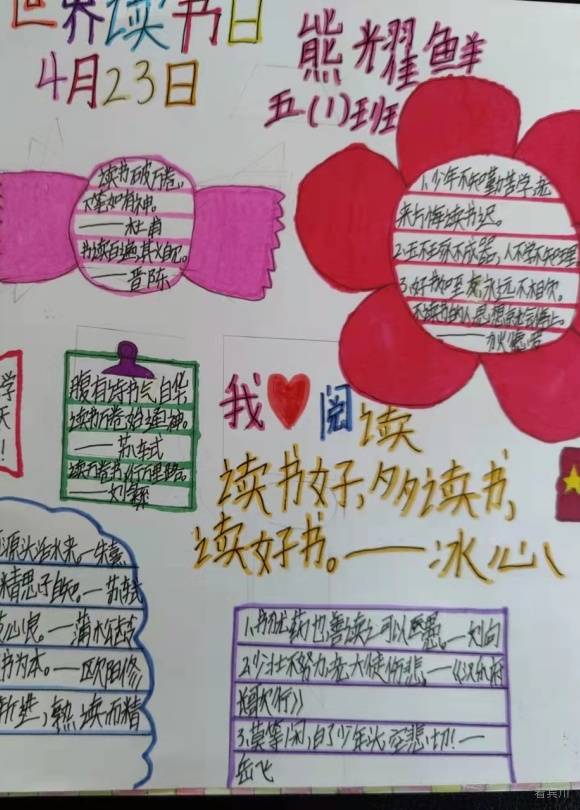 世界读书日
4月23日
熊耀鲜
五(1)班
读书破万卷,
下笔如有神。
——杜甫
书读百遍,其义自见。
——晋陈
1、少年不知勤学苦
来方悔读书迟。
2、玉不琢不成器,人不学不知理
3、好书如至友,永远不相欠。
不读书的人,思想就会停止。
学
天
!
腹有诗书气自华
读书万卷始通神。
——苏轼
读万卷书,行万里路。
——刘彝
我
阅读
读书好,多读书,
读好书。——冰心
源头活水来。—朱熹
精思子自知。—苏轼
心良。—蒲松龄
书为本。——欧阳修
渐进,熟读而精
1、书犹药也,善读之可以医愚。—刘向
2、少壮不努力,老大徒伤悲。—《汉乐府
长歌行》
3、莫等闲,白了少年头,空悲切!—
岳飞
看宾川